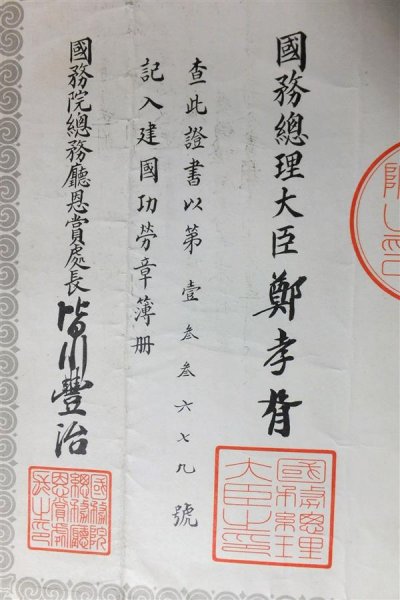 國務總理大臣 鄭孝胥
查此證書以第壹叁叁六七九號
記入建國功勞章簿册
國務院總務廳恩賞處長 皆川豐治
國務總理
大臣之印
國務院
總務廳
恩賞處
長之印